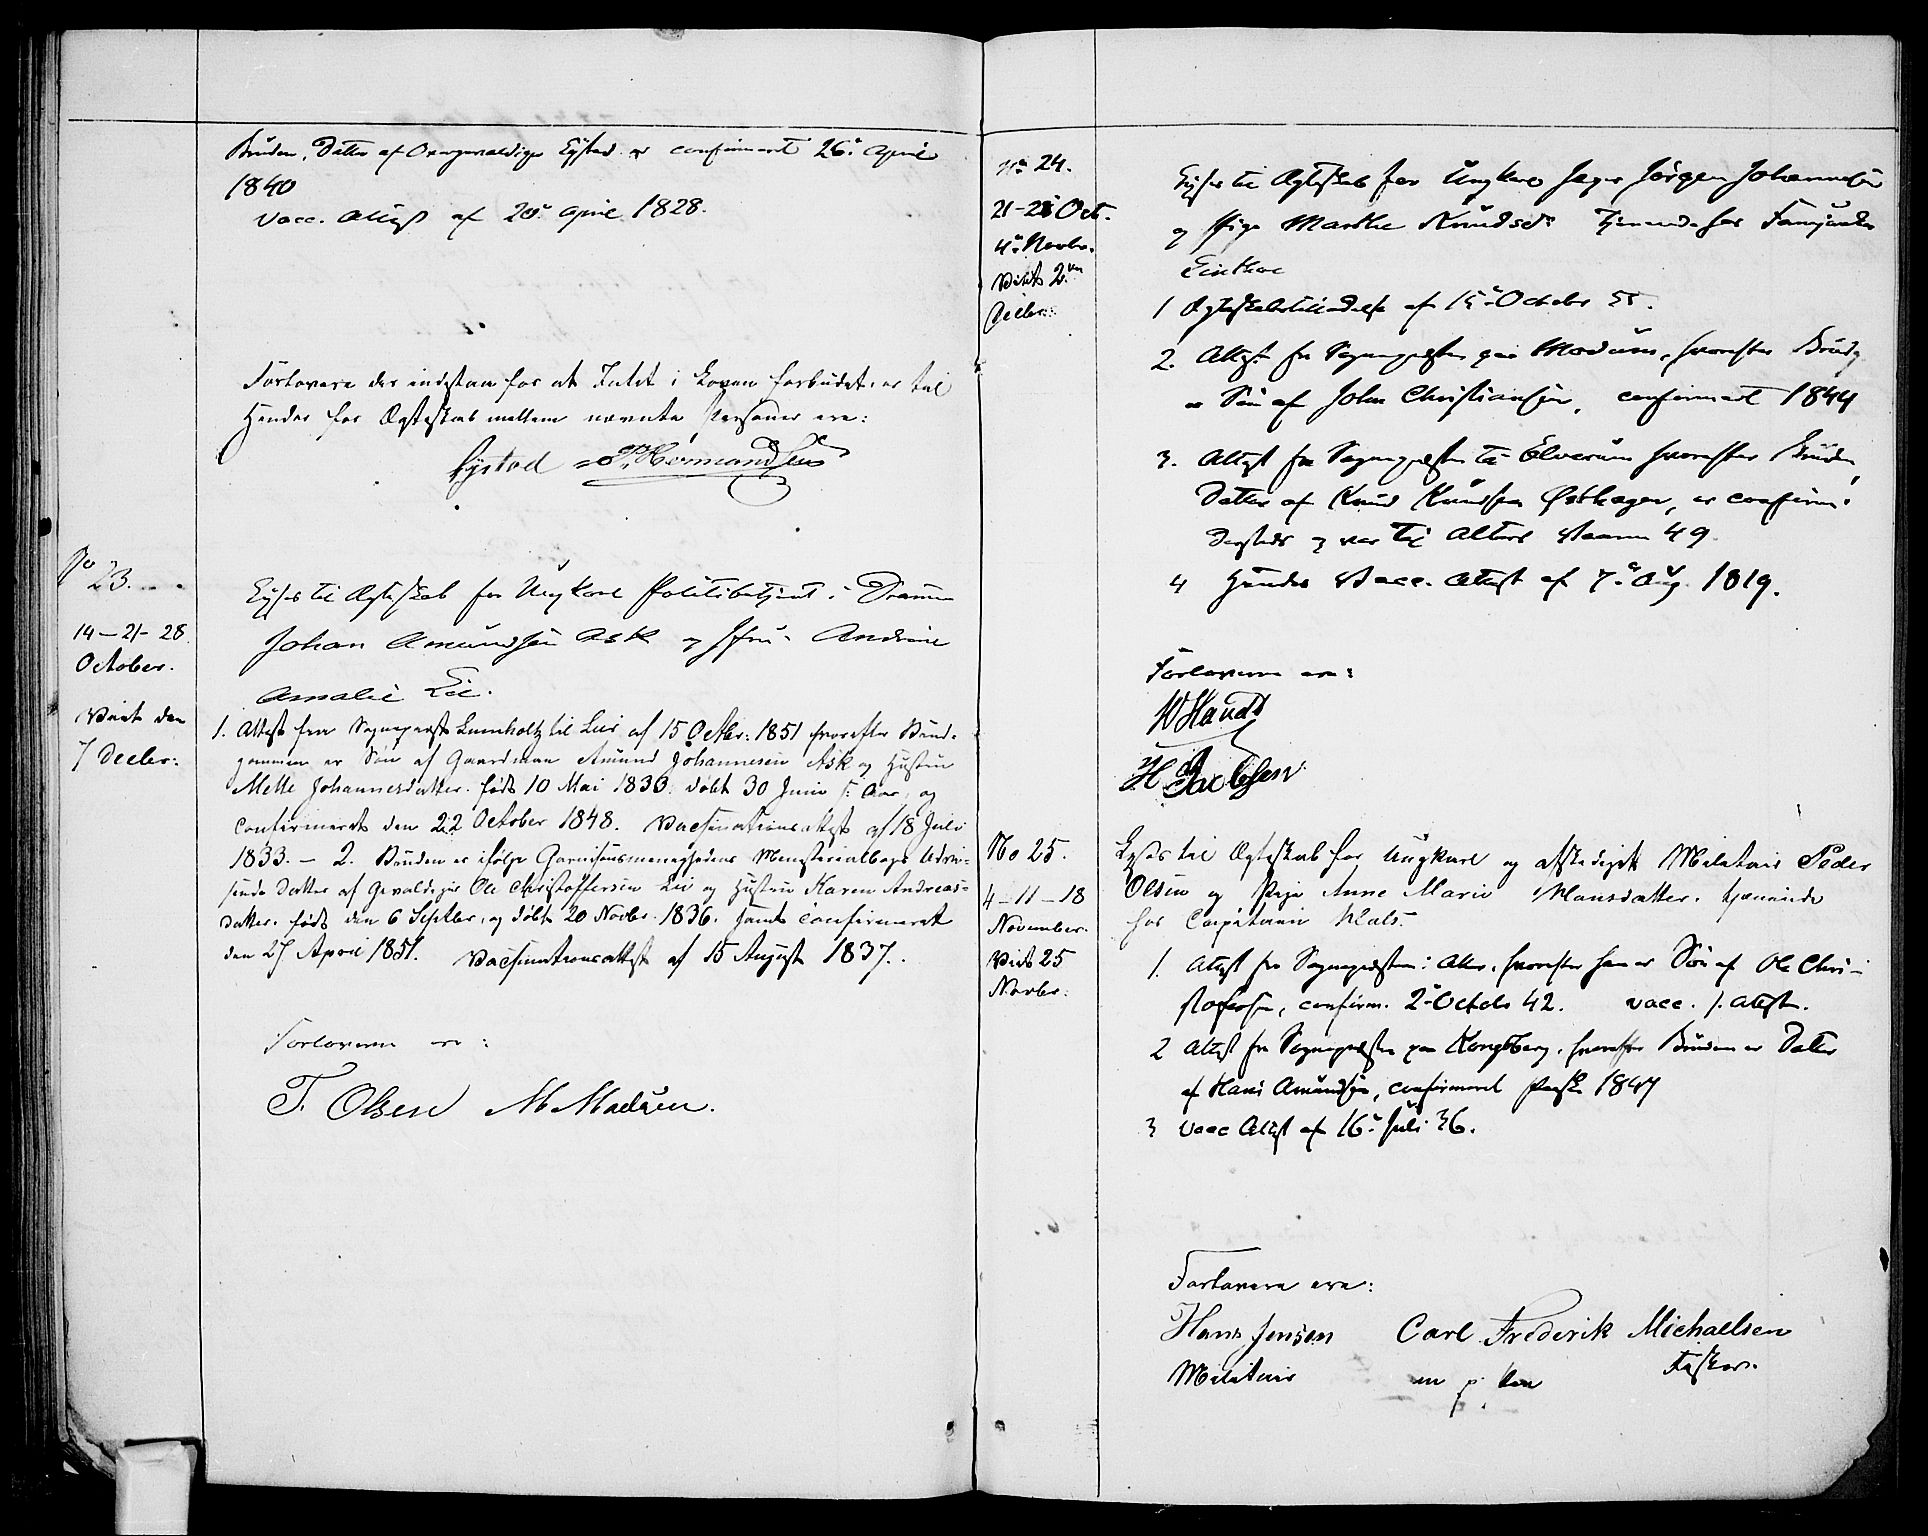 Bruden, Datter af Overgevaldiger Eystad er confirmeret 26de April
1840
Vacc. Attest af 20de April 1828.
Forlovere der indestaa for at Intet i Loven forbudet er til
Hinder for Ægteskab mellem nævnte Personer ere:
Eystad P. Hermandsen
No 23.
14-21-28
October.
Viet den
7 Decbr:
Lyses til Ægteskab for Ungkarl Politibetjent i Drammen
Johan Amundsen Ask og Jfru Andrine
Amalie Lie.
1. Attest fra Sognepræst Lumholtz til Lier af 15 Octbr: 1851 hvorefter Brud-
gommen er Søn af Gaardman Amund Johannesen Ask og Hustru
Mette Johannesdatter. født 10 Mai 1833. døbt 30 Juni s: Aar, og
Confirmeret den 22 October 1848. Vaccinationsattest af 18 Juli
1833. - 2. Bruden er ifølge Garnisonsmenighedens Ministerialbogs Udvi-
sende Datter af Gevaldiger Ole Christoffersen Lie og Hustru Karen Andreas-
datter. født den 6 Septbr, og døbt 20 Novbr. 1836. samt confirmeret
den 27 April 1851. Vaccinationsattest af 15 August 1837.
Forloverne ere:
T. Olsen M Madsen.
No 24.
21-28 Oct.
4de Novbr.
Viet 2den
Decbr:
Lyses til Ægteskab for Ungkarl Jæger Jørgen Johannesen
og Pige Marthe Knudsdr Tjenende hos
1 Ægteskabstilladelse af 15de October 55.
2. Attest fra Sognepræsten paa Modum, hvorefter Brudg
er Søn af John Christiansen, confirmert 1844
3. Attest fra Sognepræsten til Elverum hvorefter Bruden,
Datter af Knud Knudsen Østhagen, er confirm.
dersteds og var til Alters 49.
4 Hendes Vacc. Attest af 7de Aug. 1819.
Forloverne ere:
W Haudt
H Jacobsen
No 25.
4-11-18
November.
Viet 25
Novbr:
Lyses til Ægteskab for Ungkarl og afskediget Militair Peder
Olsen og Pige Anne Marie Hansdatter. tjenende
hos Capitain Klats.
1. Attest fra Sognepræsten i Aker, hvorefter han er Søn af Ole Chri-
stofersen, confirm. 2de Octobr 42. vacc. s. Attest.
2 Attest fra Sognepræsten paa Kongsberg, hvorefter Bruden er Datter
af Hans Amundsen, confirmeret Paaske 1847
3 Vacc Attest af 16de Juli 36.
Forlovere ere:
Hans Jensen Carl Frederik Michaelsen
Militair m p. Pen Fisker.